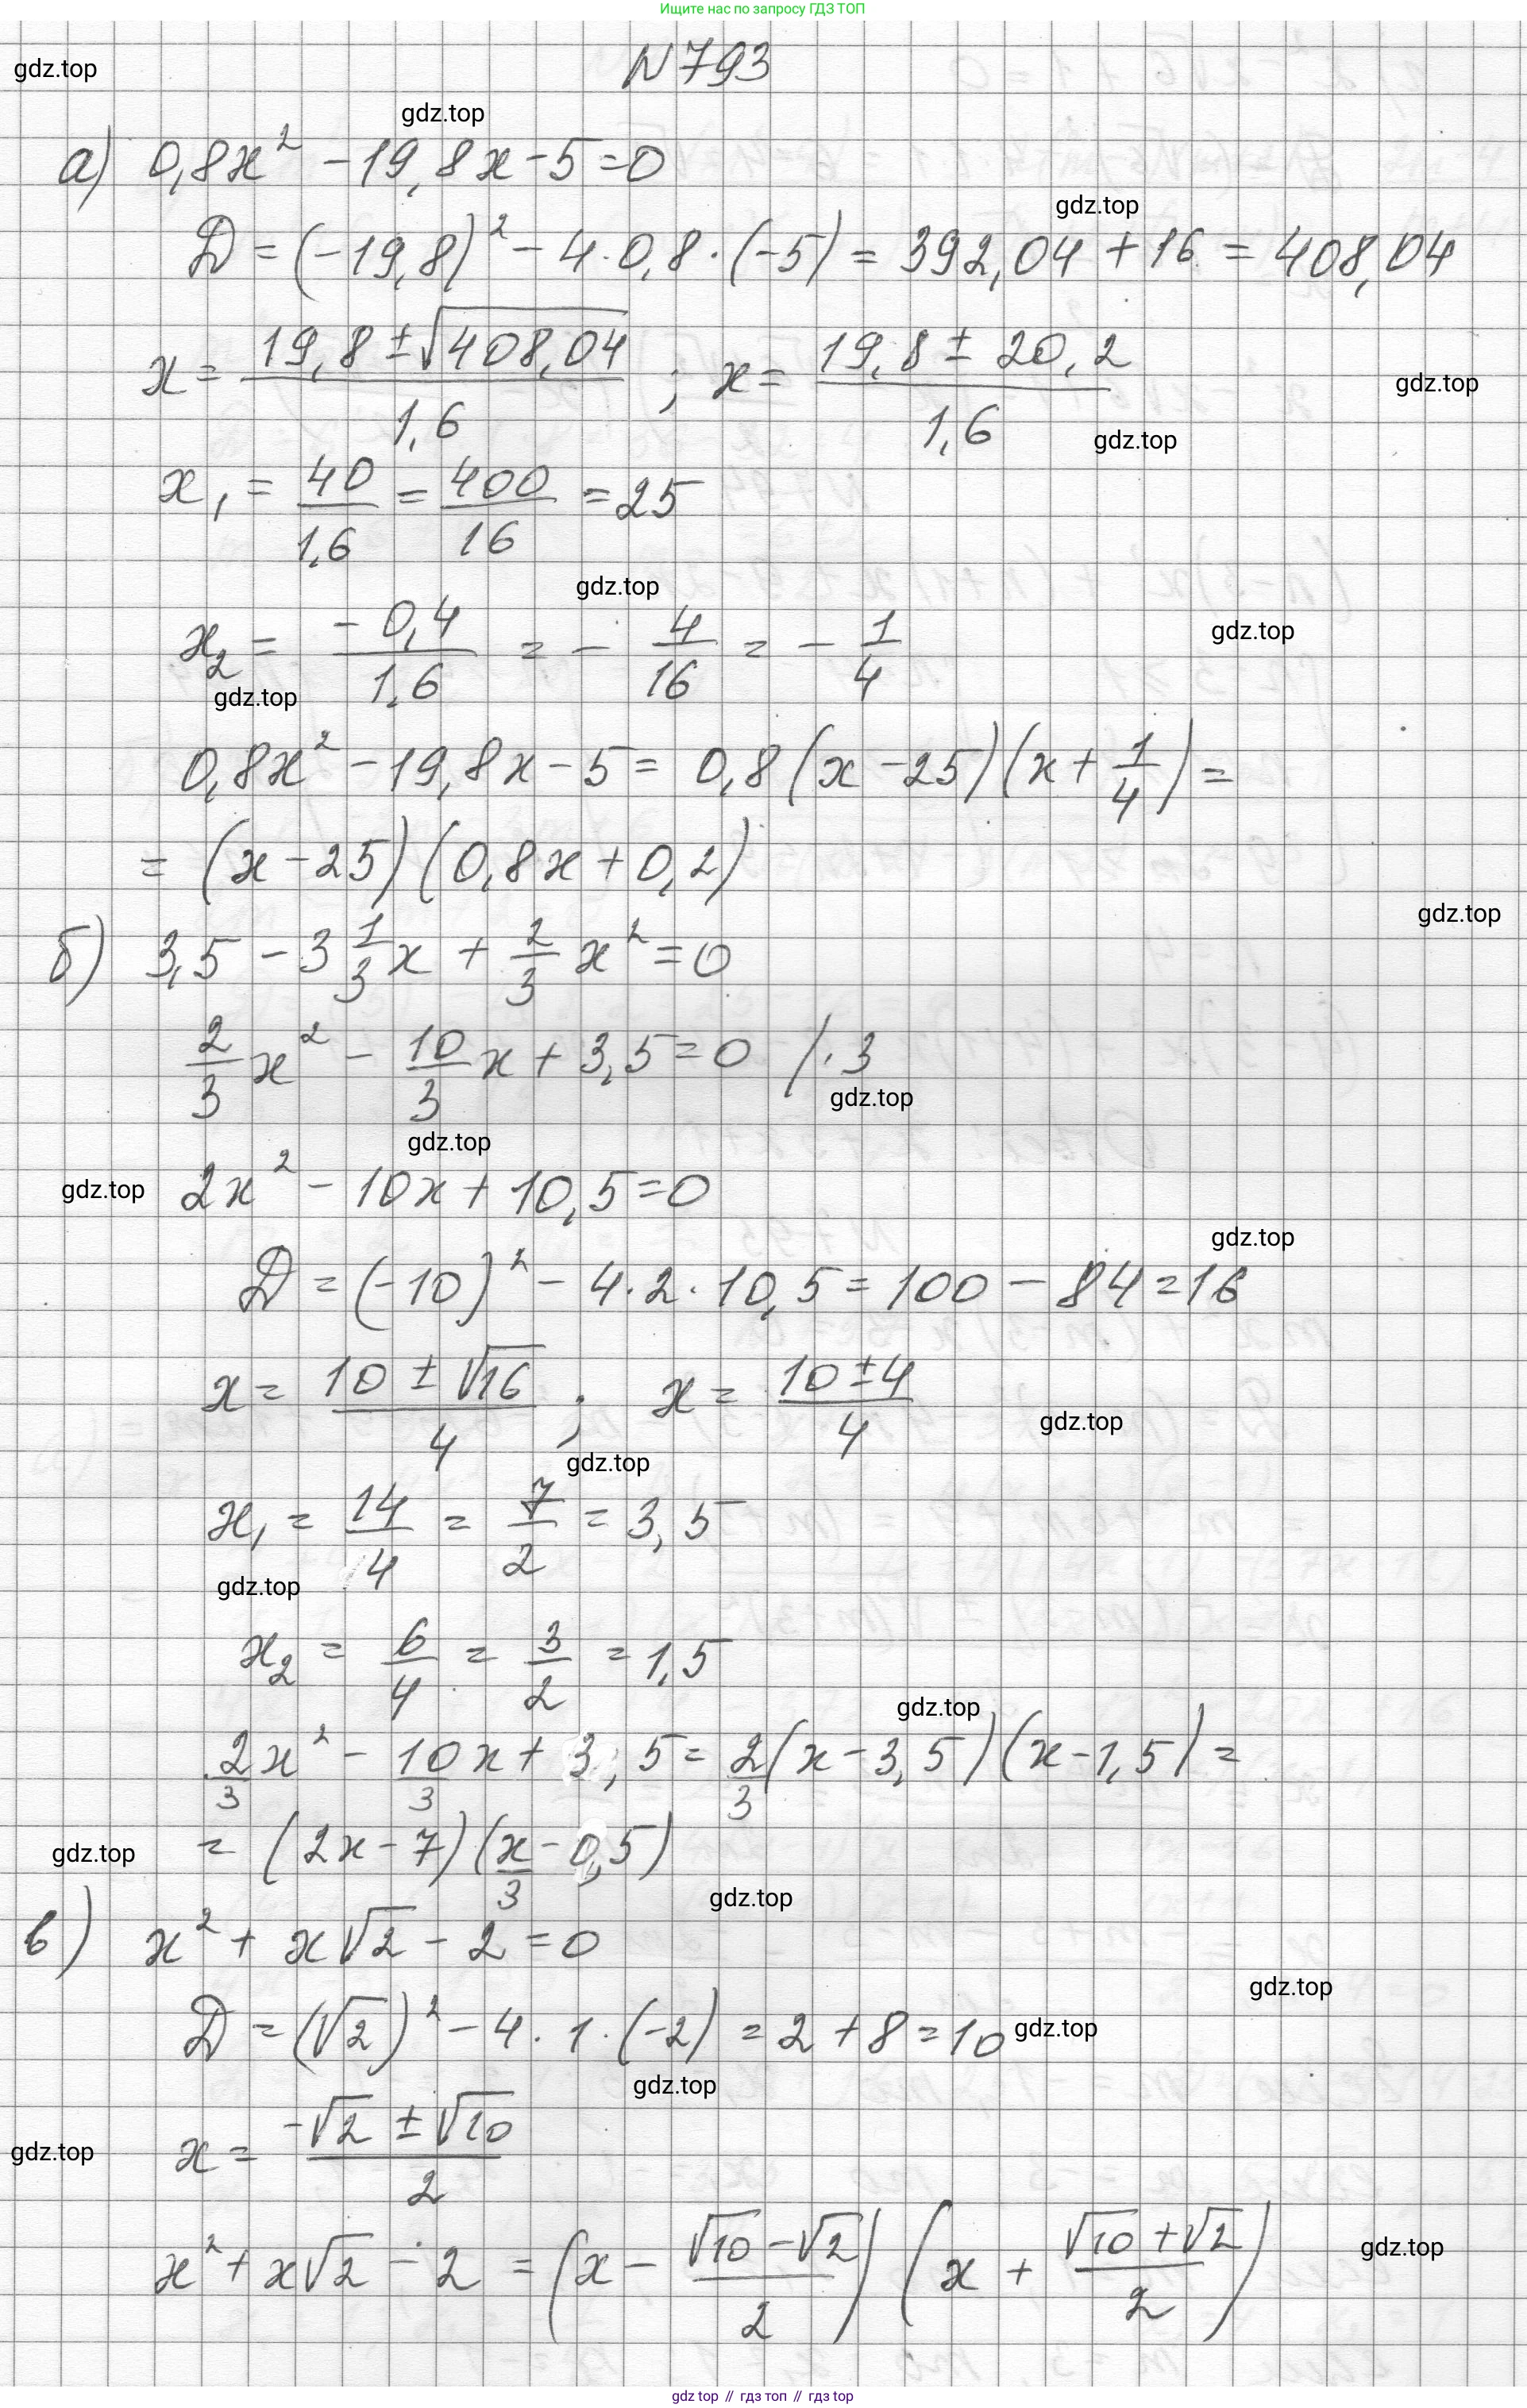 Ищите нас по запросу ГДЗ ТОП
N793
gdz.top
gdz.top
а) 0,8x² - 19,8x - 5 = 0
gdz.top
D = (-19,8)² - 4·0,8·(-5) = 392,04 + 16 = 408,04
x = (19,8 ± √408,04)/1,6 ; x = (19,8 ± 20,2)/1,6
gdz.top
gdz.top
x₁ = 40/1,6 = 400/16 = 25
gdz.top
x₂ = -0,4/1,6 = - 4/16 = - 1/4
gdz.top
gdz.top
0,8x² - 19,8x - 5 = 0,8(x - 25)(x + 1/4) =
= (x - 25)(0,8x + 0,2)
gdz.top
б) 3,5 - 3 1/3 x + 2/3 x² = 0
2/3 x² - 10/3 x + 3,5 = 0 /·3
gdz.top
gdz.top
gdz.top
2x² - 10x + 10,5 = 0
gdz.top
D = (-10)² - 4·2·10,5 = 100 - 84 = 16
x = (10 ± √16)/4 ; x = (10 ± 4)/4
gdz.top
gdz.top
x₁ = 14/4 = 7/2 = 3,5
gdz.top
x₂ = 6/4 = 3/2 = 1,5
gdz.top
2/3 x² - 10/3 x + 3,5 = 2/3 (x - 3,5)(x - 1,5) =
gdz.top
= (2x - 7)(x/3 - 0,5)
gdz.top
в) x² + x√2 - 2 = 0
gdz.top
D = (√2)² - 4·1·(-2) = 2 + 8 = 10
gdz.top
gdz.top
x = (-√2 ± √10)/2
gdz.top
x² + x√2 - 2 = (x - (√10 - √2)/2)(x + (√10 + √2)/2)
gdz.top
gdz top // гдз топ // гдз top